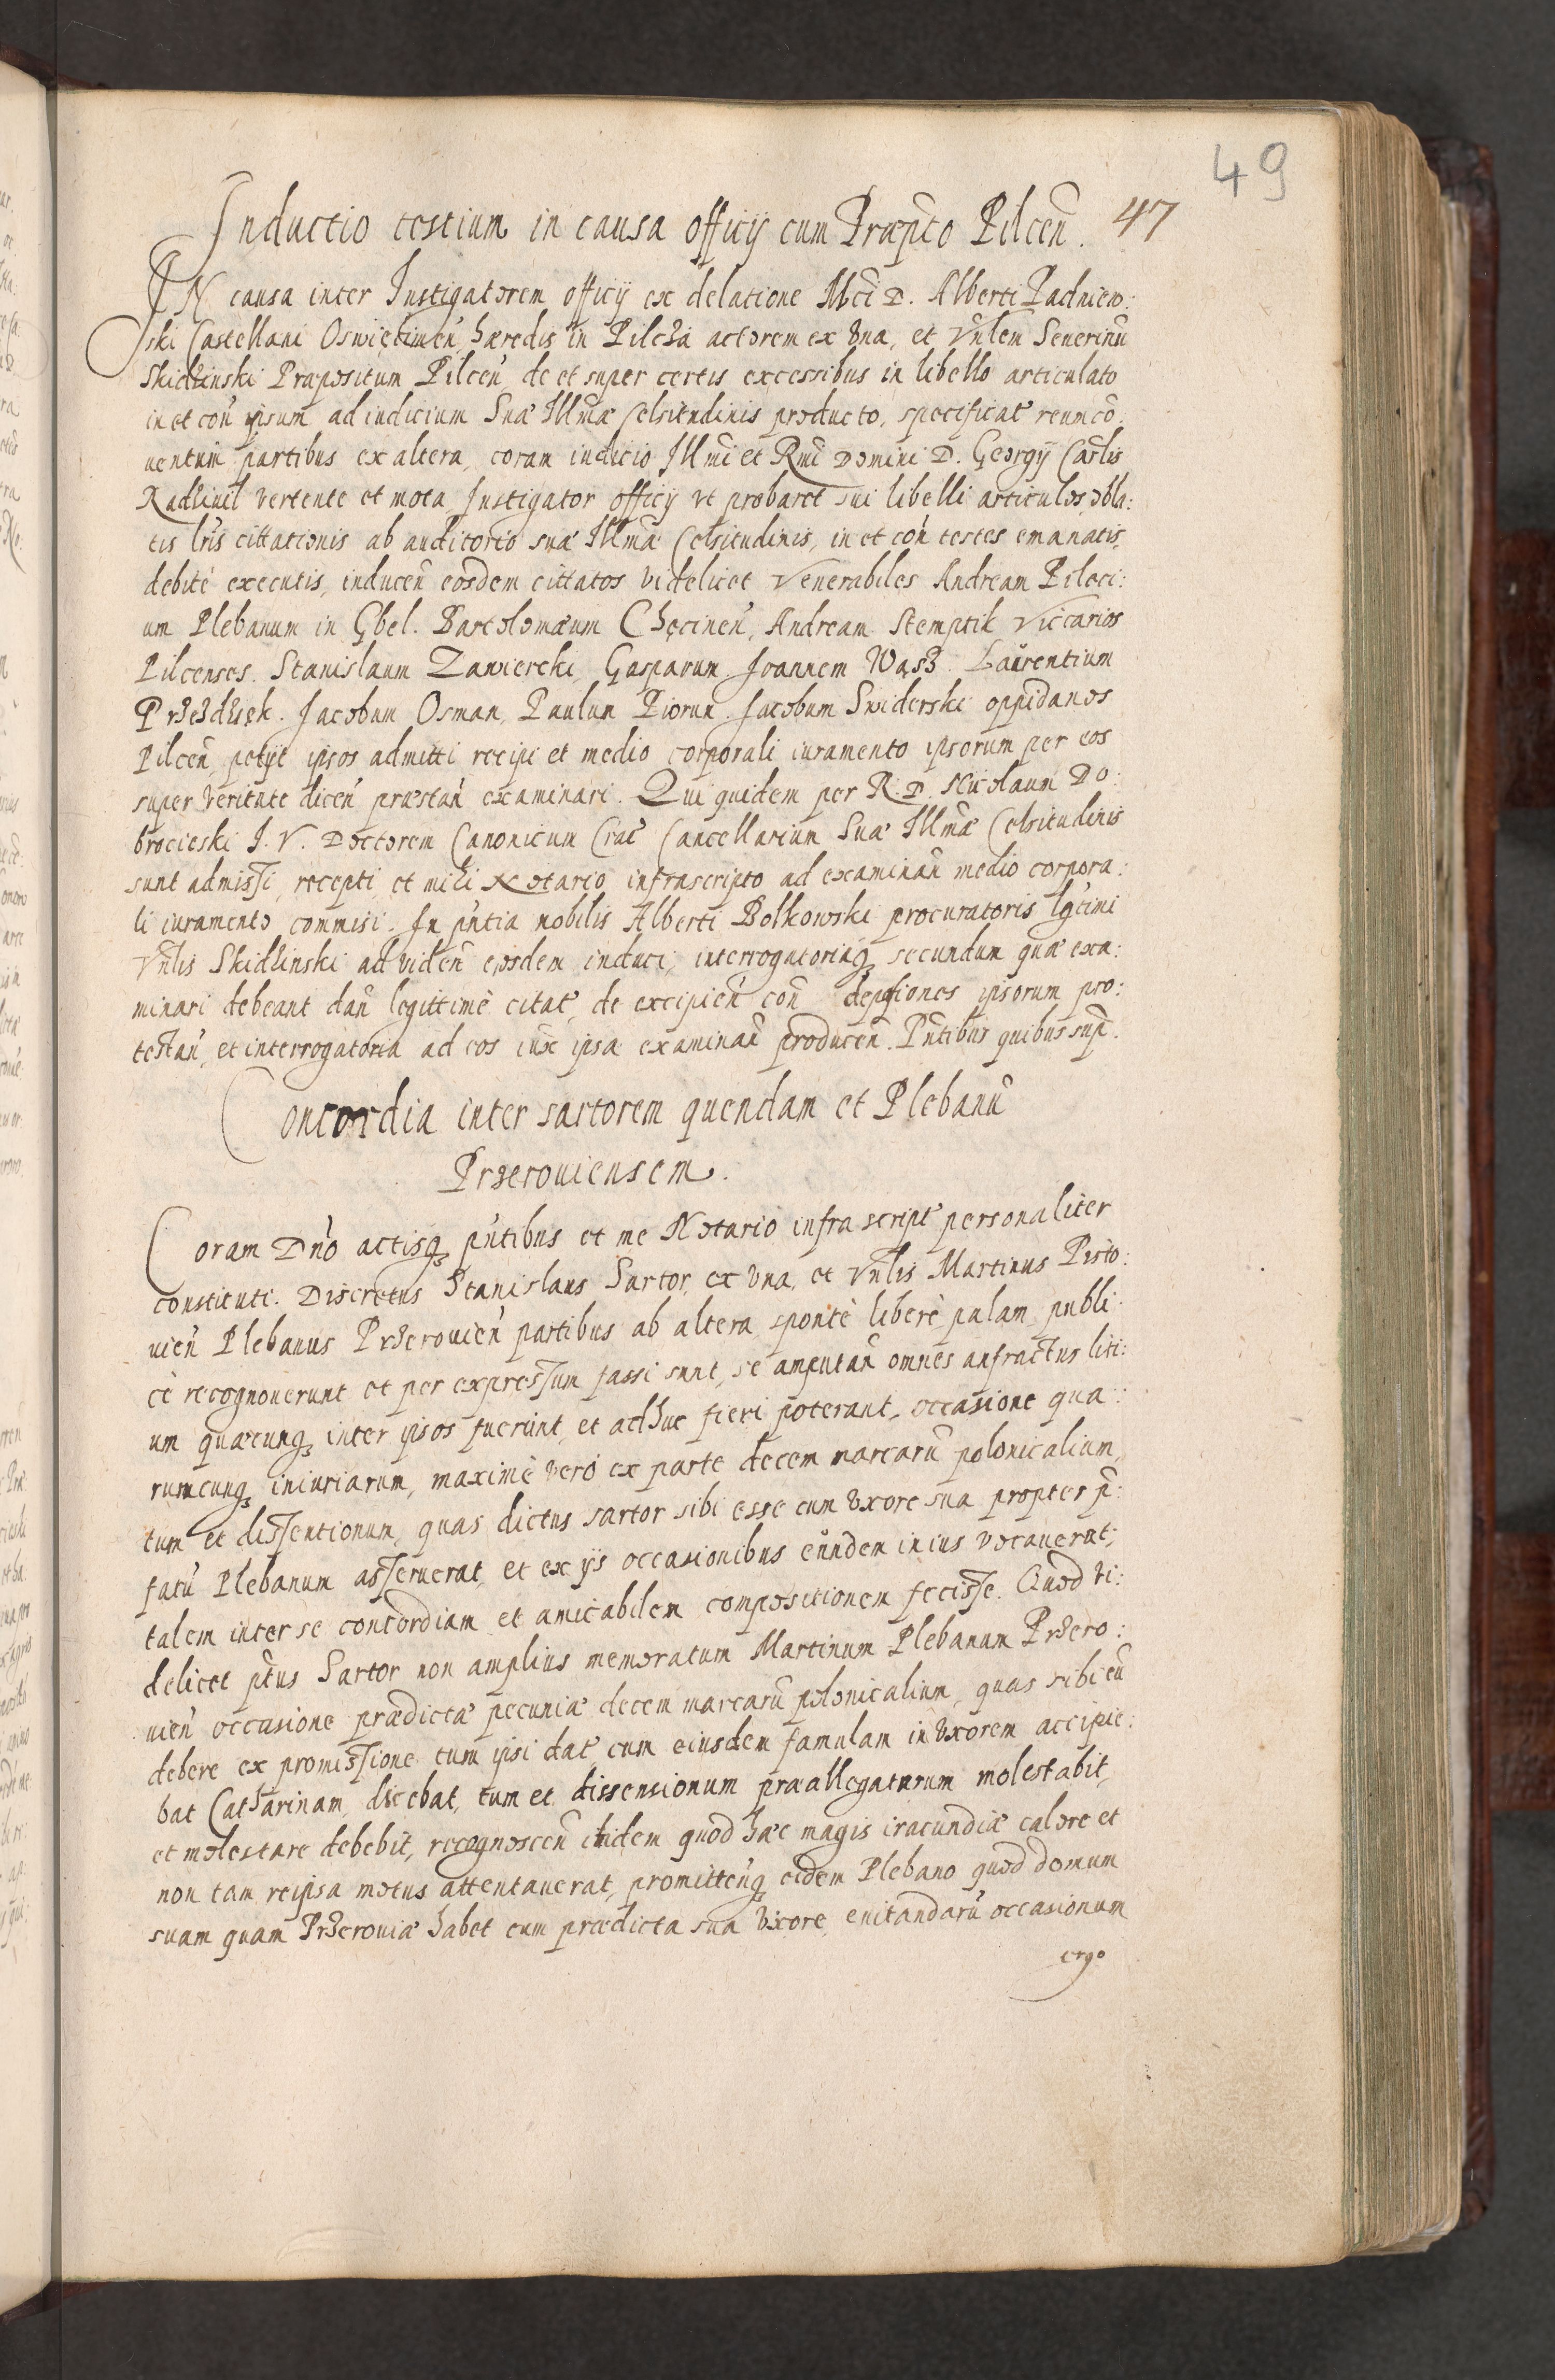 49
47
Inductio testium in causa officij cum Præpto Pilcen̄.
IN causa inter Instigatorem officij ex delatione Mci D. Alberti Padniew:
ski Castellani Oswięcimen̄, hæredis in Pilcza actorem ex vna, et Vn̄lem Seuerinū
Skidzinski Præpositum Pilcen̄, de et super certis excessibus in libello articulato
in et con̄ ipsum ad iudicium Suæ Illmæ Celsitudinis producto, specificat̄ reum cō:
uentum partibus ex altera, coram iudicio Illmi et Rmi Domini D. Georgij Car̄lis
Radziuil vertente et mota Instigator officij vt probaret sui libelli articulos, obla:
tis lr̄is cittationis ab auditorio suæ Illmæ Celsitudinis, in et con̄ testes emanatis,
debitè executis, inducen̄ eosdem cittatos videlicet Venerabiles Andream Pileci:
um Plebanum in Gbel. Bartolomæum Chęcinen̄, Andream Stemptik Viccarios
Pilcenses. Stanislaum Zawiercki, Gasparum. Joannem Wąsz. Laurentium
Przezdzięk. Jacobum Osman, Paulum Piorun. Jacobum Swiderski oppidanos
Pilcen̄, petijt ipsos admitti recipi et medio corporali iuramento ipsorum per eos
super veritate dicen̄ præstan̄ examinari. Qui quidem per R. D. Nicolaum Do:
brocieski I. V. Doctorem Canonicum Crac̄ Cancellarium Suæ Illmæ Celsitudinis
sunt admissi, recepti, et mihi Notario infrascripto ad examinan̄ medio corpora:
li iuramento commisi. In pn̄tia nobilis Alberti Bolkowski procuratoris lgt̄imi
Vn̄lis Skidzinski ad viden̄ eosdem induci, interrogatoriaq3 secundum quæ exa:
minari debeant dan̄ legittimè citat̄, de excipien̄ con̄ depōsiones ipsorum pro:
testan̄, et interrogatoria ad eos iux̄ ipsa examinan̄ producen̄. Pn̄tibus quibus sup̄.
Concordia inter sartorem quendam et Plebanū
Przerouiensem.
Coram Dn̄o actisq3 pn̄tibus et me Notario infra script̄ personaliter
constituti. Discretus Stanislaus Sartor, ex vna, et Vn̄lis Martinus Pisto:
uien̄ Plebanus Przerouien̄ partibus ab altera, spontè liberè palam publi:
cè recognouerunt et per expressum fassi sunt, se amputan̄ omnes anfractus liti:
um quæcunq3 inter ipsos fuerunt, et adhuc fieri poterant, occasione qua:
rumcunq3 iniuriarum, maximè verò ex parte decem marcarū polonicalium,
tum et dissentionum, quas dictus sartor sibi esse cum vxore sua propter p̄:
fatū Plebanum asseruerat, et ex ijs occasionibus eundem in ius vocauerat,
talem inter se concordiam et amicabilem compositionem fecisse. Quod vi:
delicet p̄tus Sartor non amplius memoratum Martinum Plebanum Przero:
uien̄ occasione prædictæ pecuniæ decem marcarū polonicalium, quas sibi eū
debere ex promissione tum ipsi dat̄, cum eiusdem famulam in vxorem accipie:
bat Catharinam, dicebat, tum et dissensionum præallegatarum molestabit,
et molestare debebit, recognoscen̄ ibidem quod hæc magis iracundiæ calore et
non tam reipsa motus attentauerat, promitten̄q3 eidem Plebano quod domum
suam quam Przerouiæ habet cum prædicta sua vxore, euitandarū occasionum
ergo